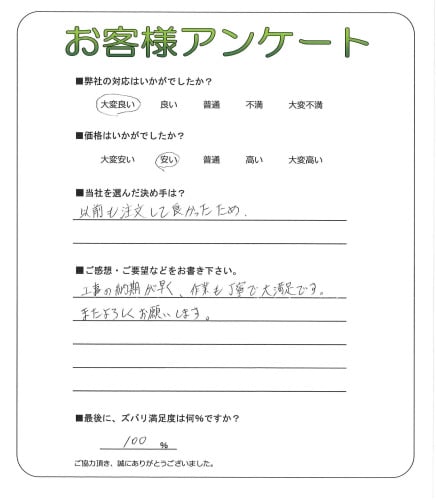 お客様アンケート
■弊社の対応はいかがでしたか?
大変良い 良い 普通 不満 大変不満
■価格はいかがでしたか?
大変安い 安い 普通 高い 大変高い
■当社を選んだ決め手は?
以前も注文して良かったため.
■ご感想・ご要望などをお書き下さい。
工事の納期が早く、作業も丁寧で大満足です。
またよろしくお願いします。
■最後に、ズバリ満足度は何%ですか?
100 %
ご協力頂き、誠にありがとうございました。